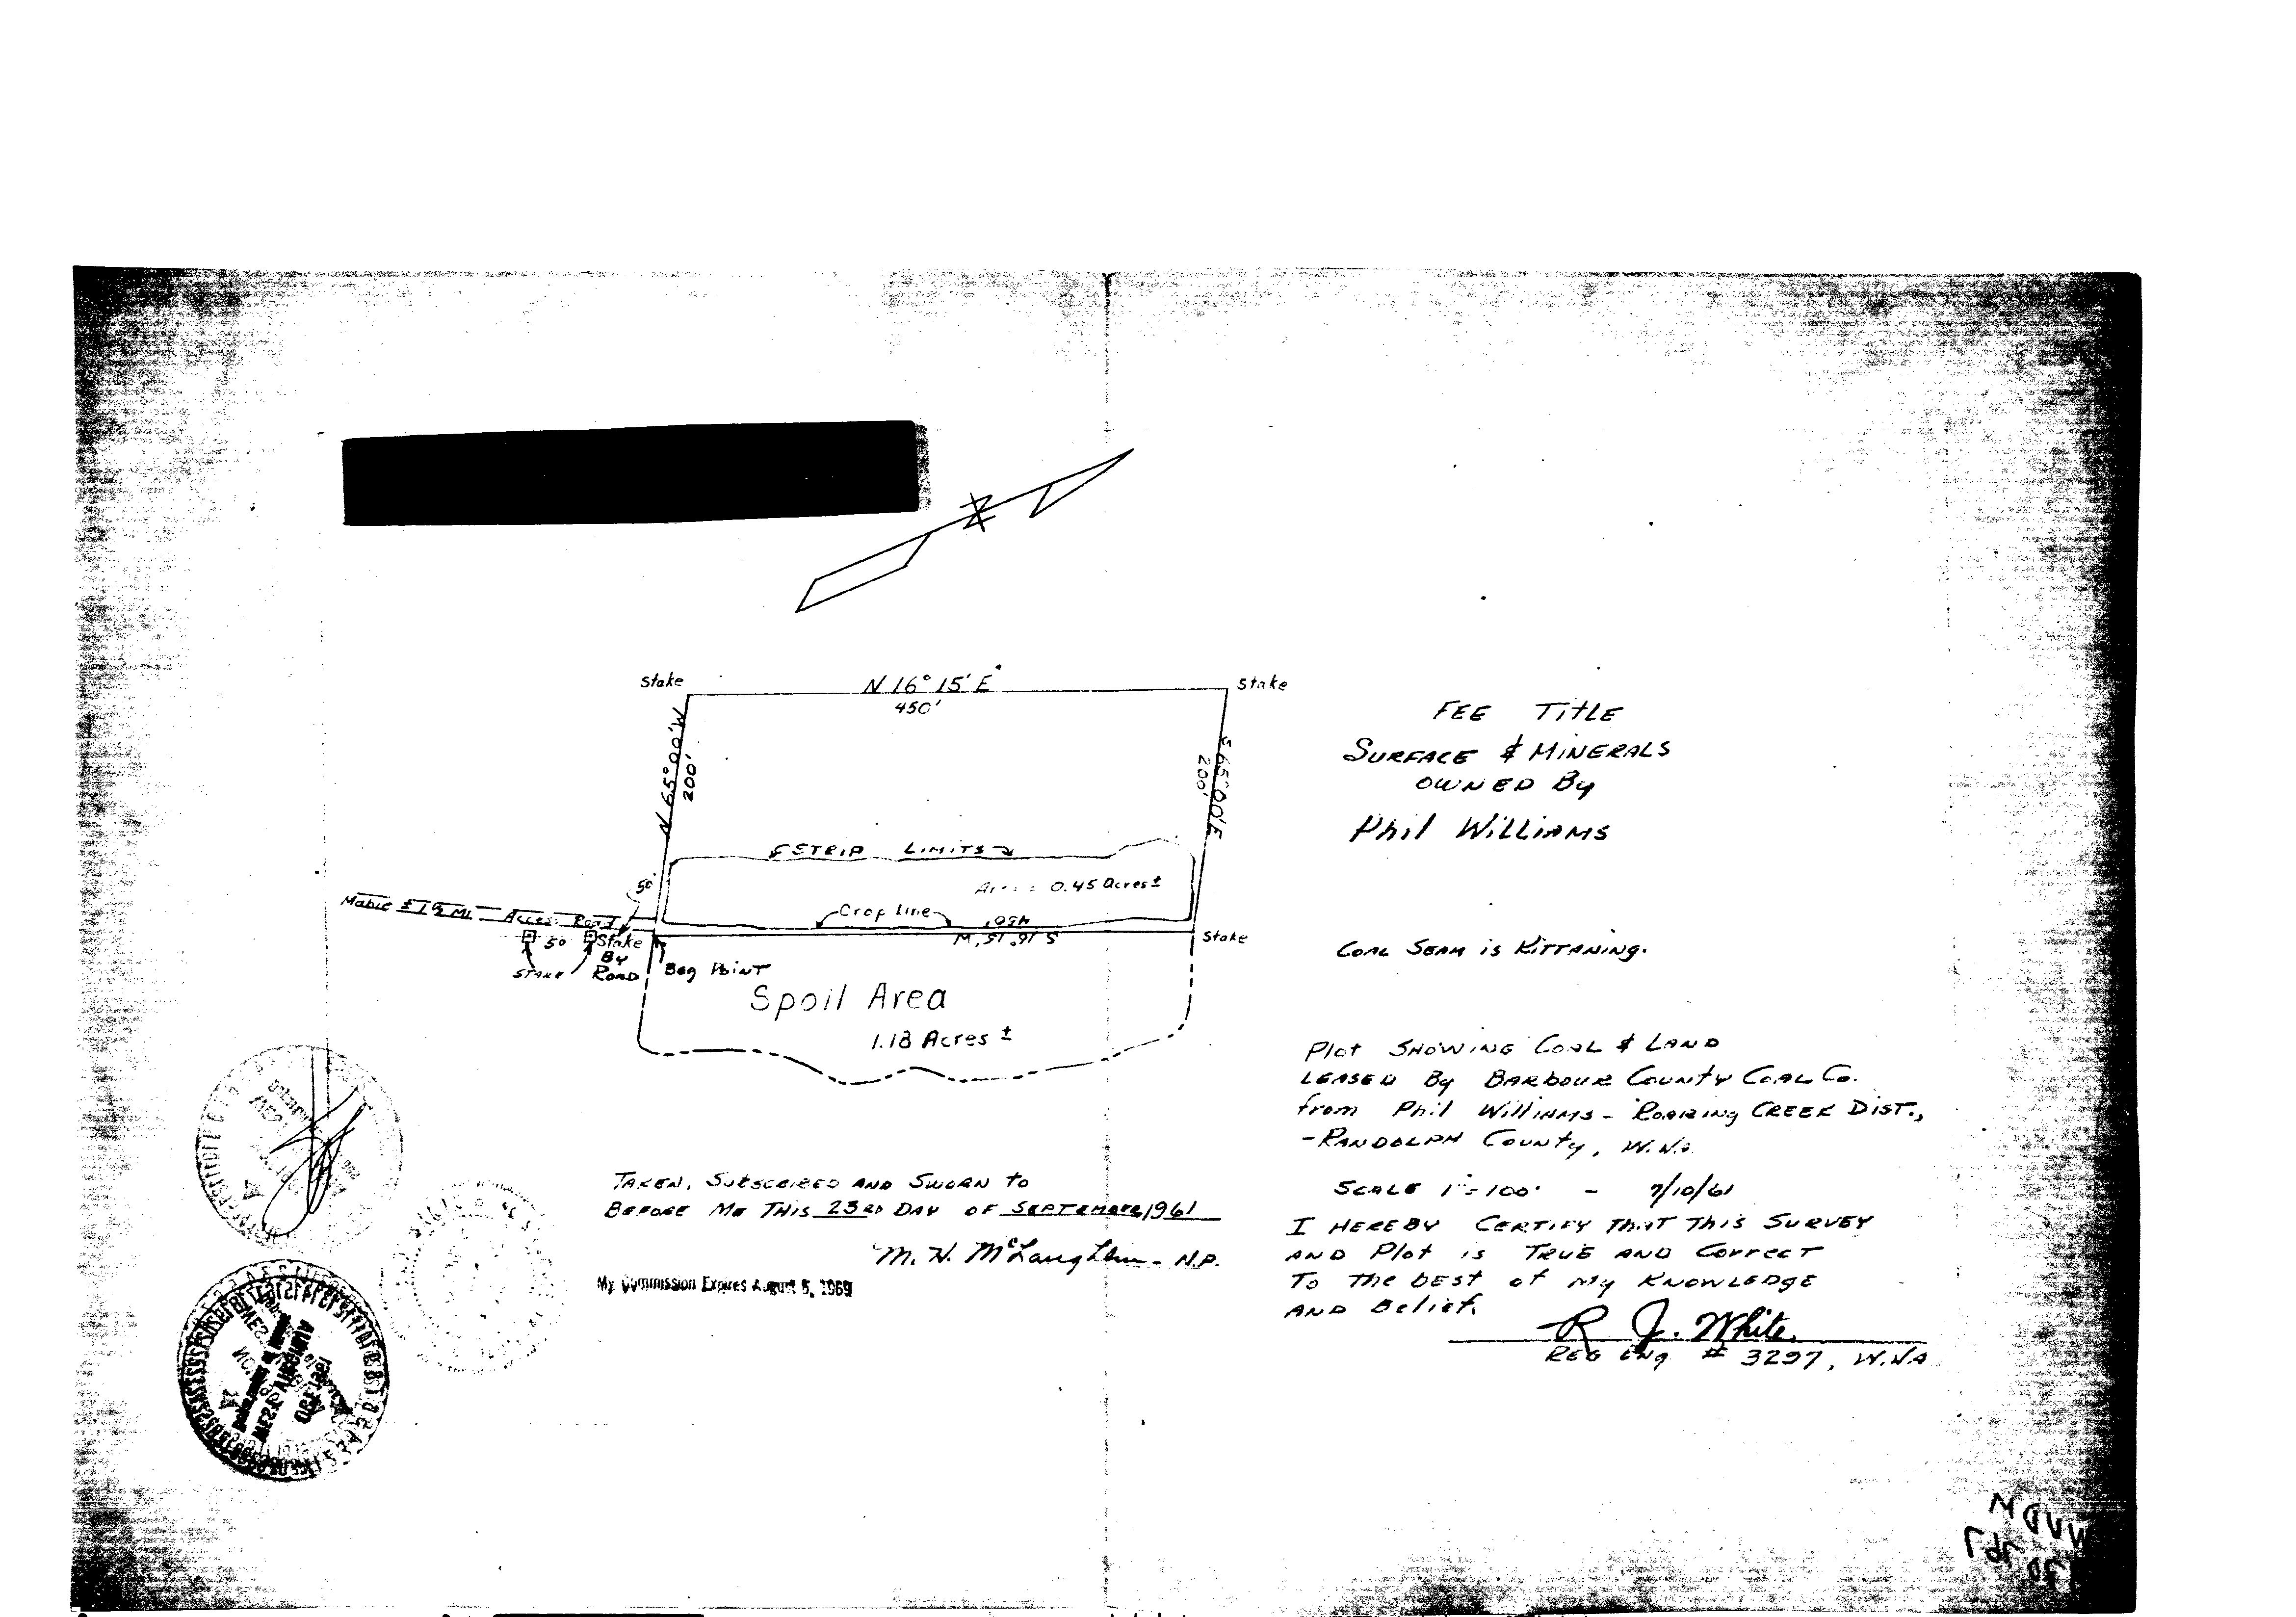 N
Stake
N 16° 15' E
Stake
450'
N 65° 00' W
200'
S 65° 00' E
200'
STRIP LIMITS
50'
0.45 Acres ±
Crop line
450'
S 16° 15' W
Mabie ± 1 1/2 Mi. Access Road
50
Stake
By
Road
Stake
Stake
Beg Point
Spoil Area
1.18 Acres ±
FEE TITLE
SURFACE & MINERALS
OWNED By
Phil WILLIAMS
COAL SEAM is KITTANING.
Plot SHOWING COAL & LAND
LEASED By BARBOUR COUNTY COAL Co.
from Phil Williams - ROARING CREEK DIST.,
- RANDOLPH COUNTY, W.VA.
SCALE 1"=100' - 7/10/61
I HEREBY CERTIFY THAT THIS SURVEY
AND Plot is TRUE AND CORRECT
TO THE BEST of My KNOWLEDGE
AND Belief.
R J. White
REG Eng # 3297, W.VA
TAKEN, SUBSCRIBED AND SWORN to
BEFORE ME THIS 23RD DAY OF SEPTEMBER 1961
M. H. McLaughlin - N.P.
My Commission Expires August 5, 1969